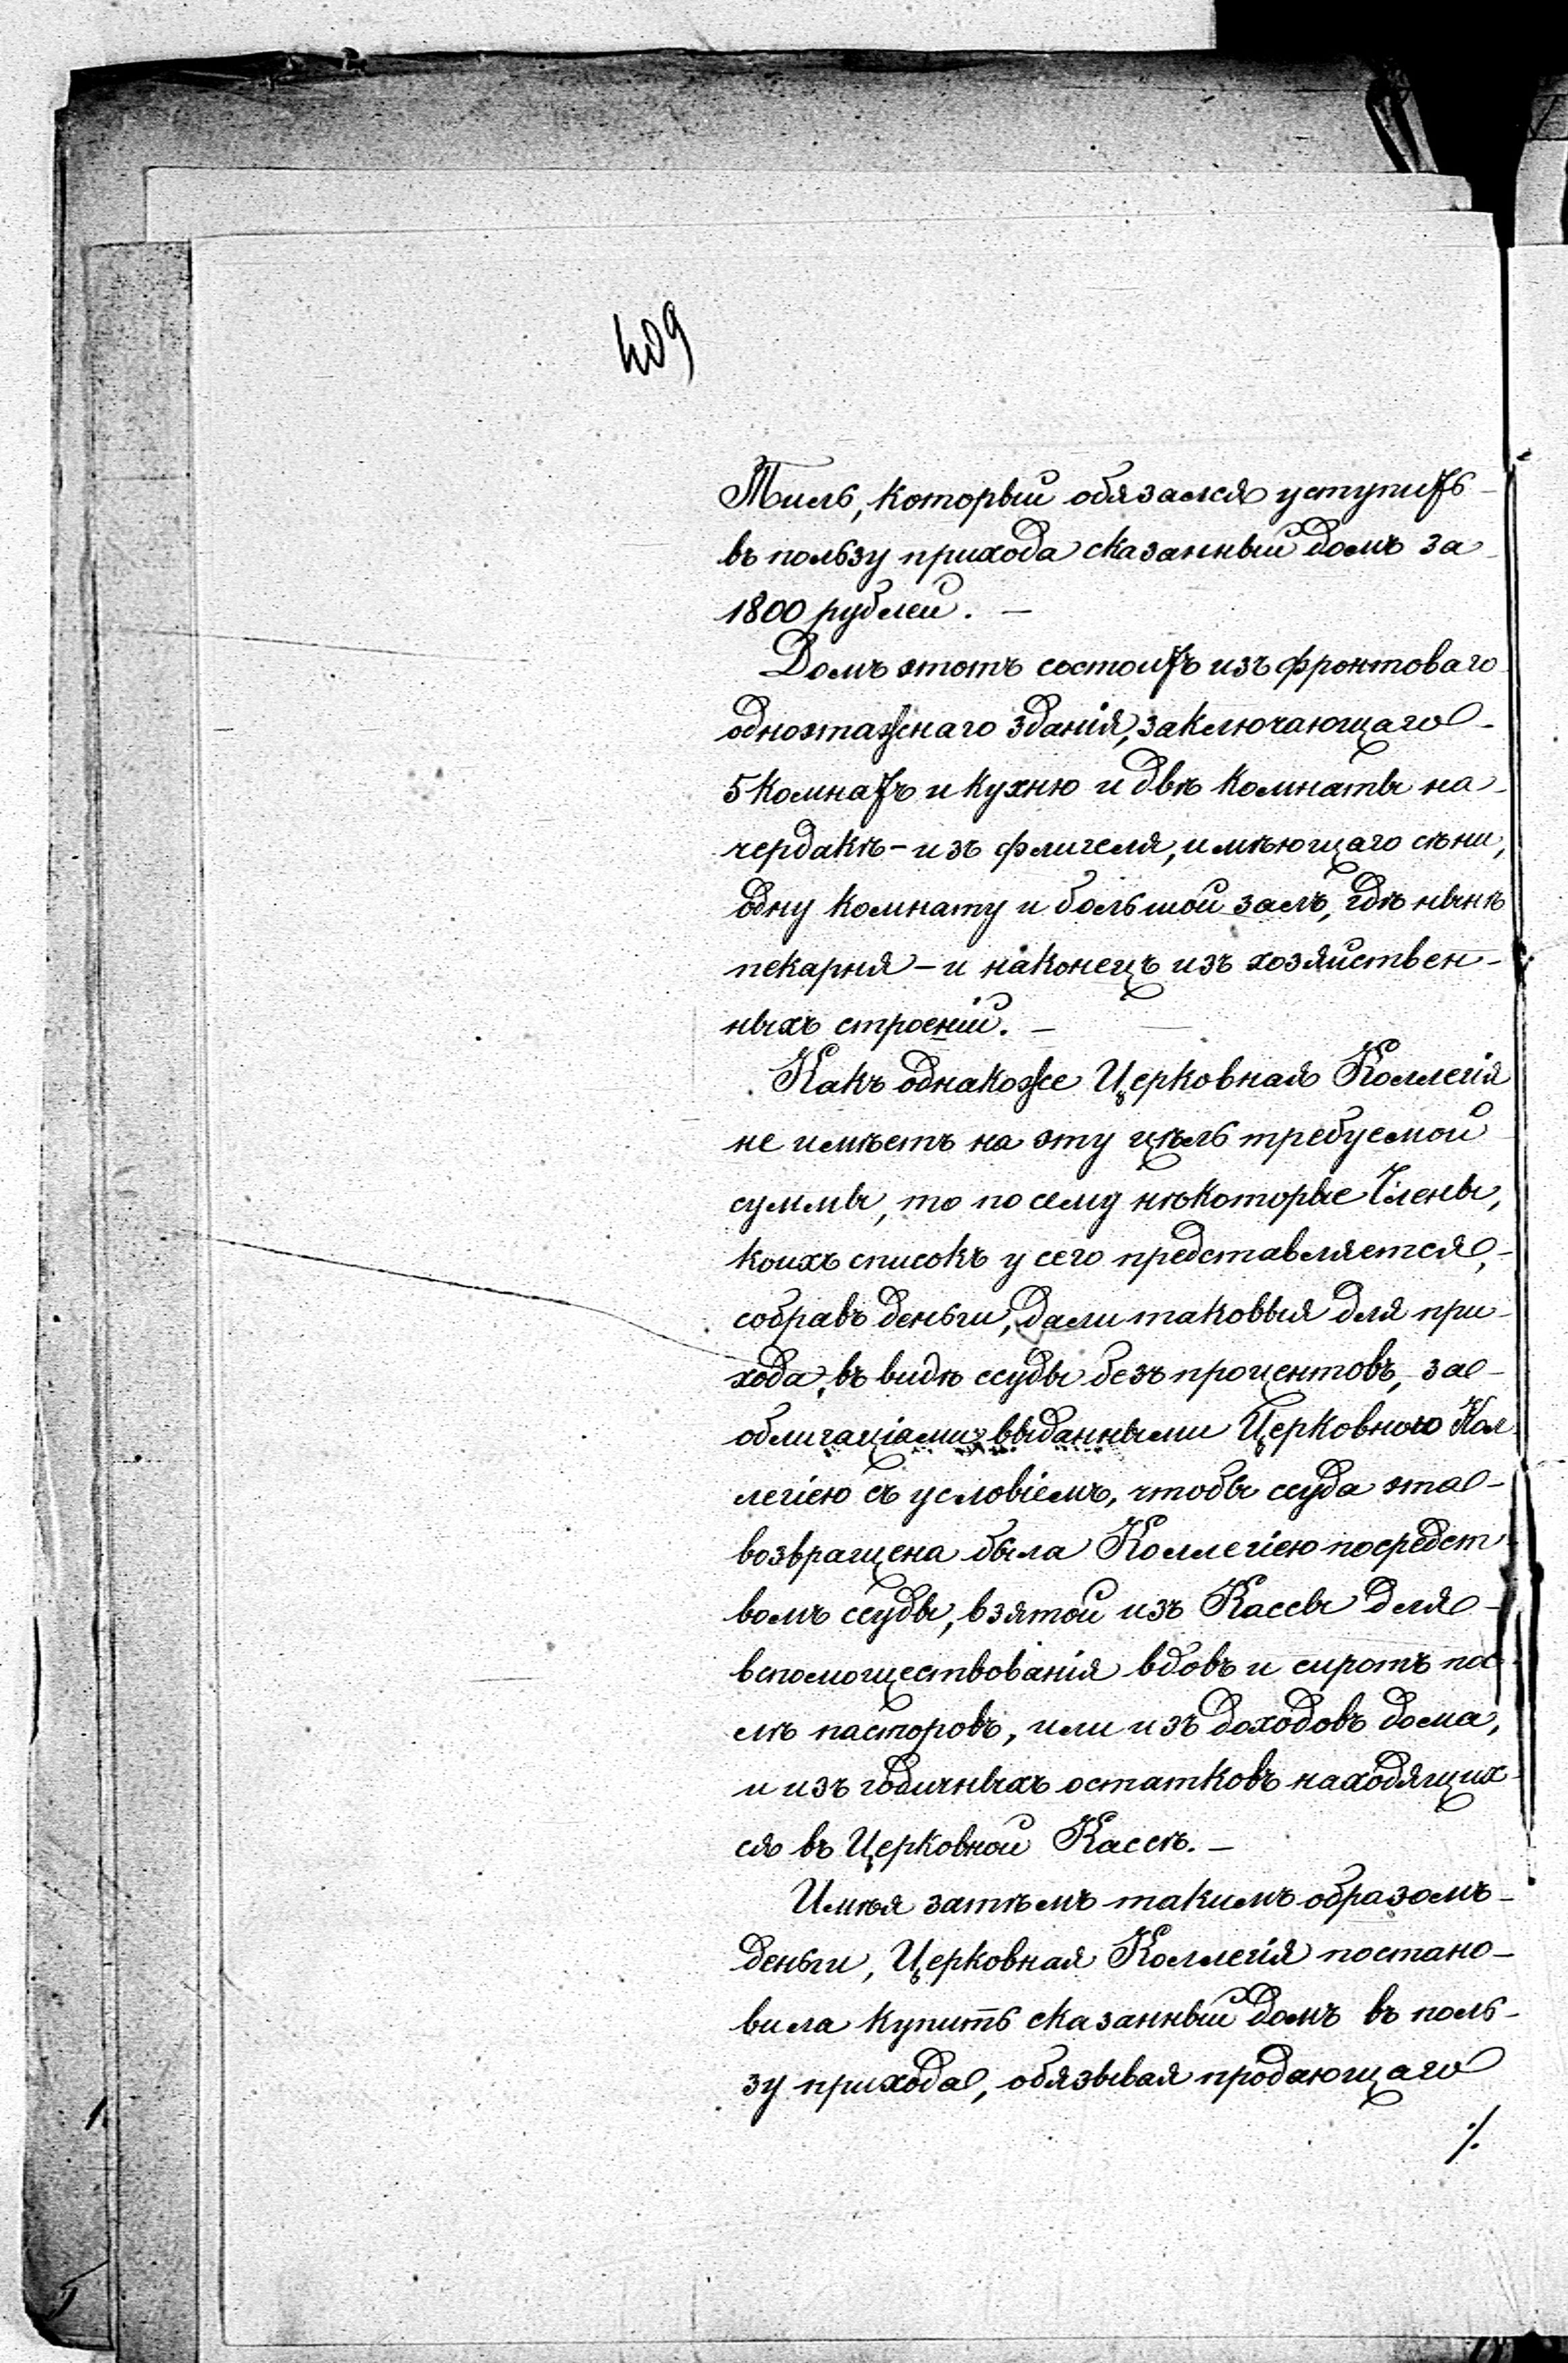 409
Тиль, который обязался уступить
въ пользу прихода сказанный домъ за
1800 рублей. —
Домъ этотъ состоитъ изъ фронтоваго
одноэтажнаго зданія, заключающаго
5 комнатъ и кухню и двѣ комнаты на
чердакѣ – изъ флигеля, имѣющаго сѣни,
одну комнату и большой залъ, гдѣ нынѣ
пекарня – и наконецъ изъ хозяйствен-
ныхъ строеній. —
Какъ однакоже Церковная Коллегія
не имѣетъ на эту цѣль требуемой
суммы, то по сему нѣкоторые Члены,
коихъ списокъ у сего представляется,
собравъ деньги, дали таковыя для при-
хода, въ видѣ ссуды безъ процентовъ, за
облигаціями выданными Церковною Кол-
легіею съ условіемъ, чтобы ссуда эта
возвращена была Коллегіею посредст-
вомъ ссуды, взятой изъ Кассы для
вспомоществованія вдовъ и сиротъ пос-
лѣ пасторовъ, или изъ доходовъ дома,
и изъ годичныхъ остатковъ находящих-
ся въ Церковной Кассѣ. —
Имѣя затѣмъ такимъ образомъ
деньги, Церковная Коллегія постано-
вила купить сказанный домъ въ поль-
зу прихода, обязывая продающаго
./.